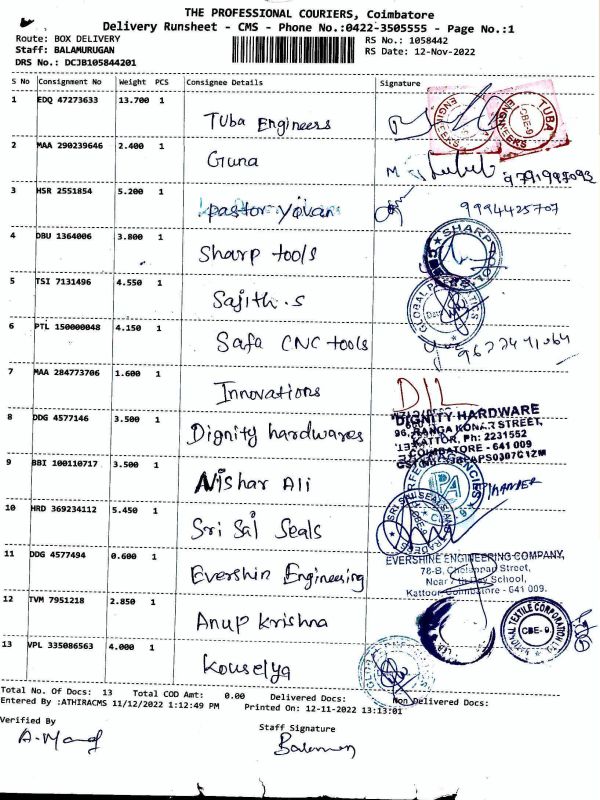 THE PROFESSIONAL COURIERS, Coimbatore
Delivery Runsheet - CMS - Phone No.:0422-3505555 - Page No.:1
Route: BOX DELIVERY
RS No.: 1058442
Staff: BALAMURUGAN
RS Date: 12-Nov-2022
DRS No.: DCJB105844201
S No Consignment No Weight PCS Consignee Details Signature
1 EDQ 47273633 13.700 1 Tuba Engineers
ENGINEERS
TUBA CBE-9 ENGINEERS
2 MAA 290239646 2.400 1 Guna
3 HSR 2551854 5.200 1 pastor yovan 9994425707
4 DBU 1364006 3.800 1 Sharp tools
SHARP TOOL
5 TSI 7131496 4.550 1 Sajith.s
6 PTL 150000048 4.150 1 Safa CNC tools
7 MAA 284773706 1.600 1 Innovations
8 DDG 4577146 3.500 1 Dignity hardwares
DIGNITY HARDWARE
96, RANGA KONAR STREET,
KATTOR, Ph: 2231552
COIMBATORE - 641 009
9 BBI 100110717 3.500 1 Nishar Ali
10 HRD 369234112 5.450 1 Sri Sai Seals
11 DDG 4577494 0.600 1 Evershin Engineering
EVERSHINE ENGINEERING COMPANY,
78-B, Chelappan Street,
Near 7th Day School,
Kattoor, Coimbatore - 641 009.
12 TVM 7951218 2.850 1 Anup krishna
NATIONAL TEXTILE CORPORATION
CBE-9.
13 VPL 335086563 4.000 1 Kouselya
Total No. Of Docs: 13 Total COD Amt: 0.00 Delivered Docs: Non Delivered Docs:
Entered By :ATHIRACMS 11/12/2022 1:12:49 PM Printed On: 12-11-2022 13:13:01
Verified By
Staff Signature